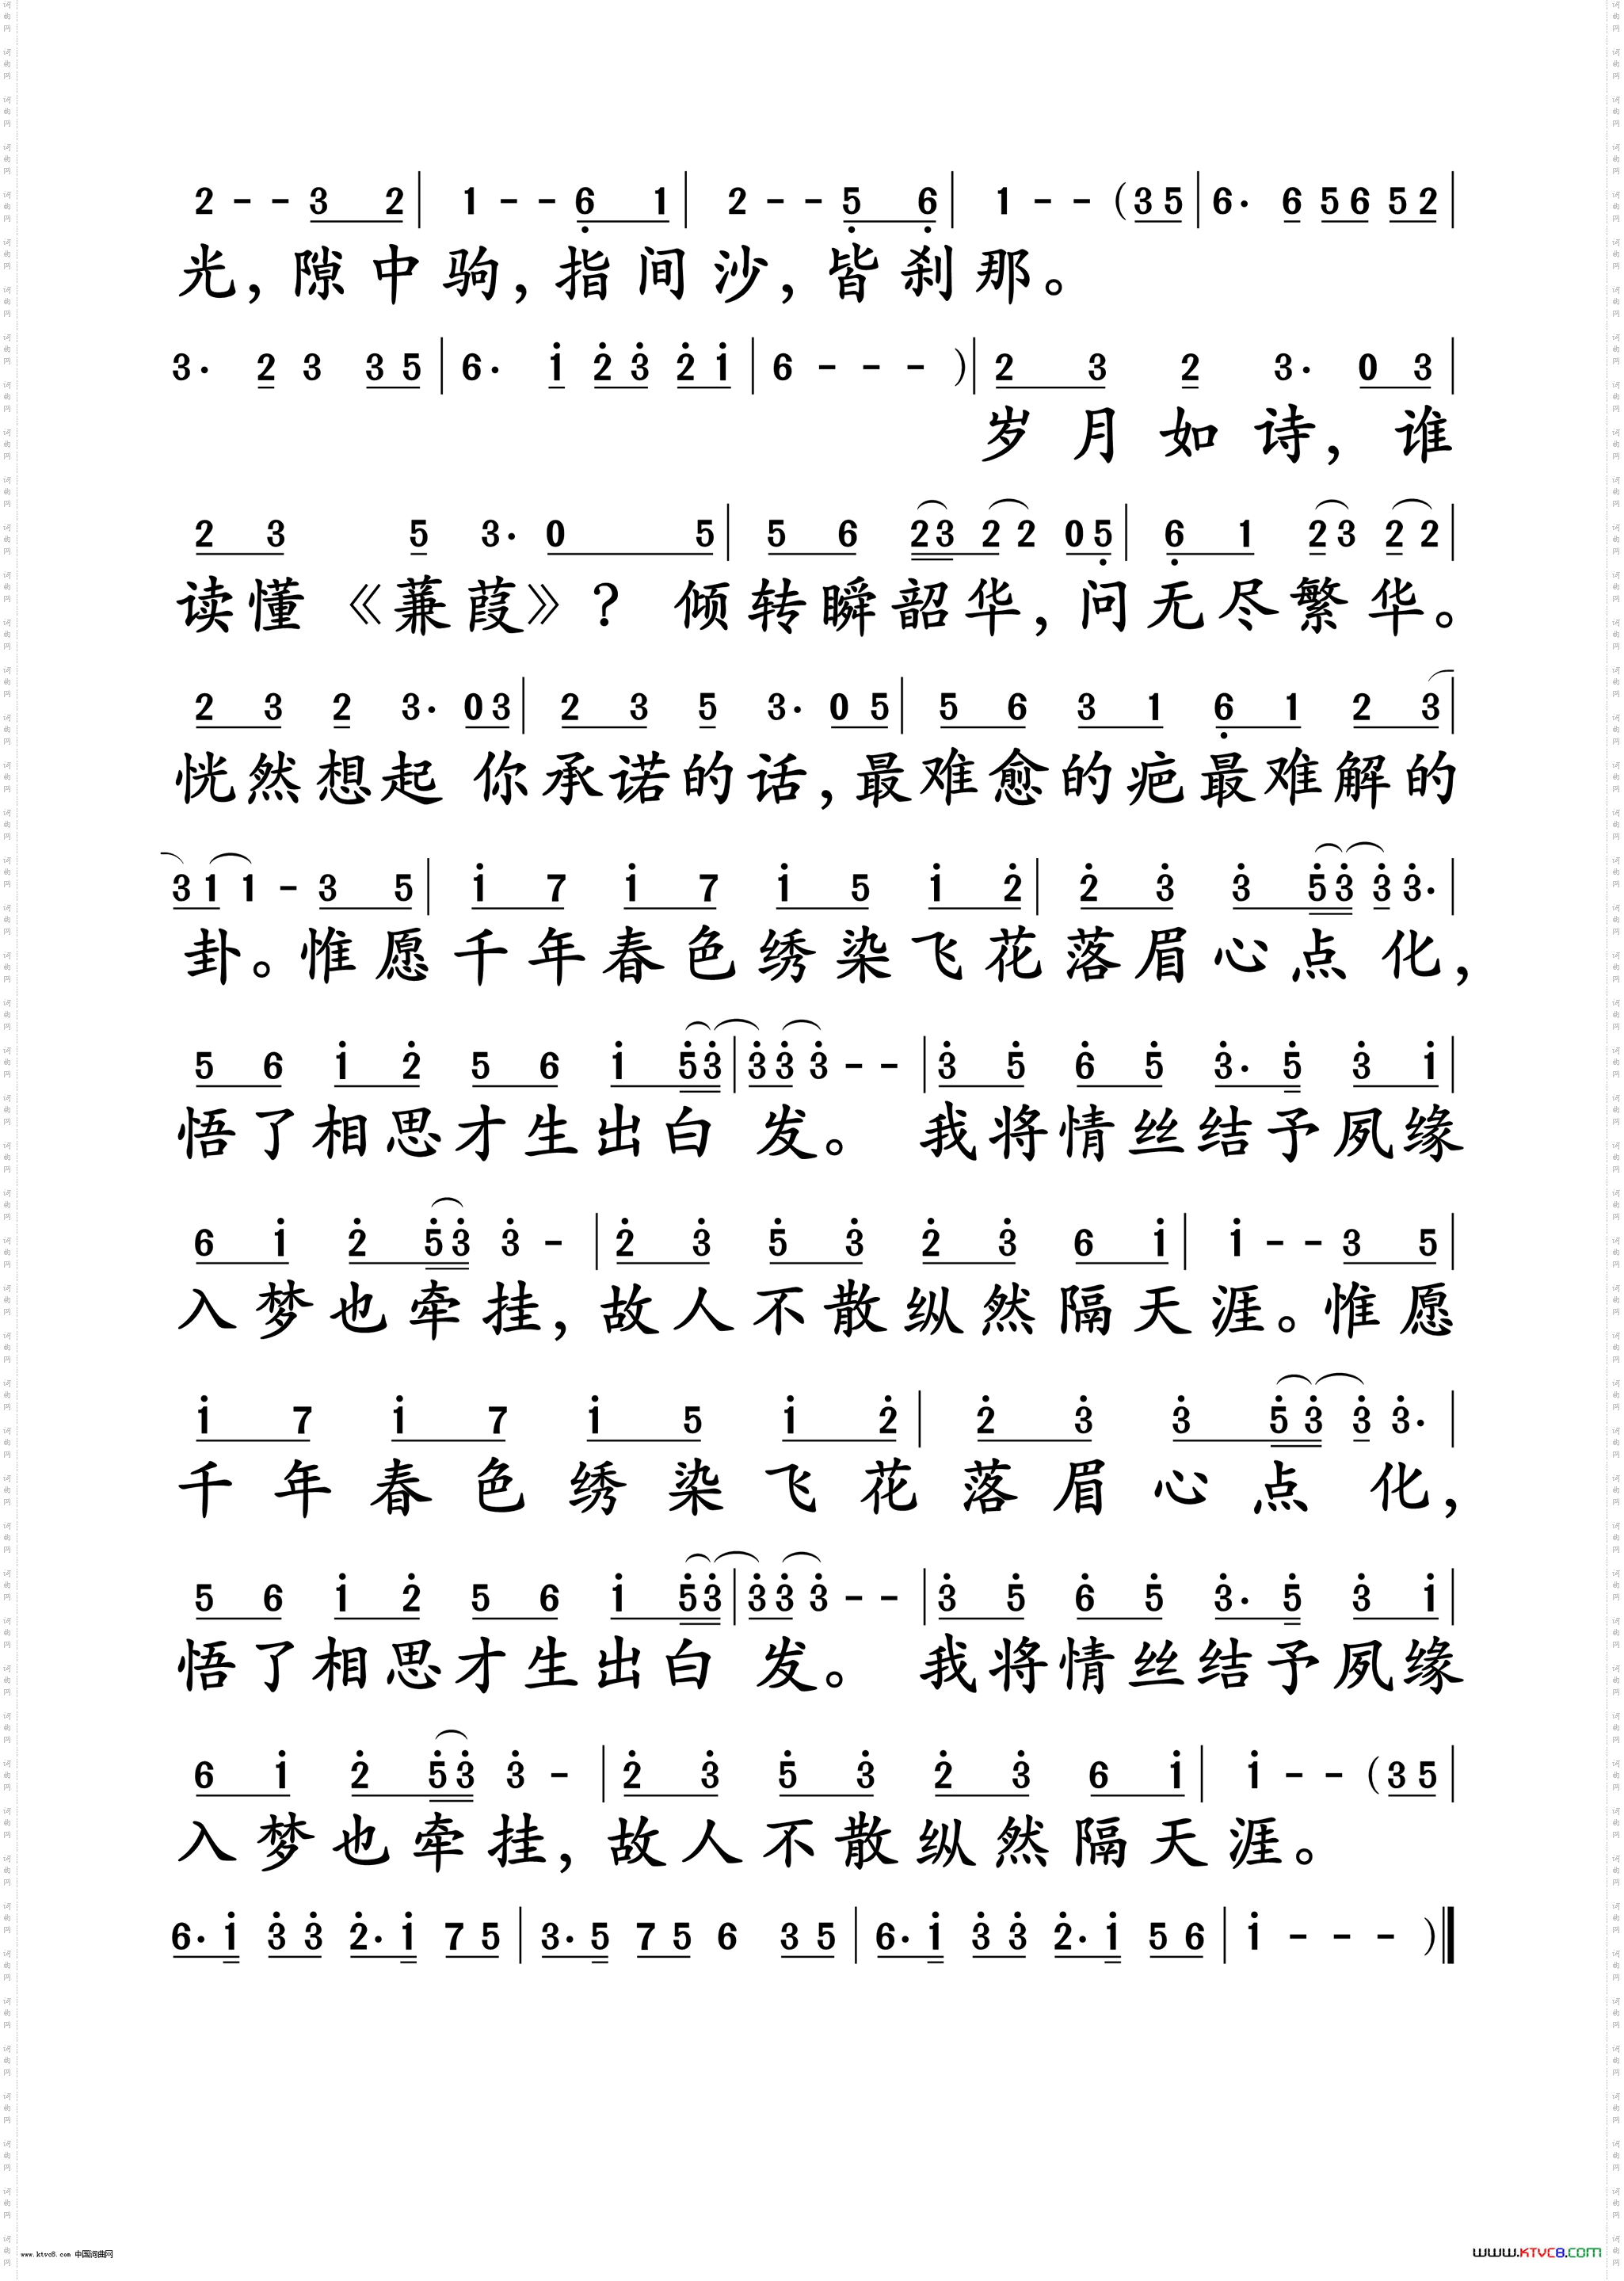 2 - - 3 2 | 1 - - 6 1 | 2 - - 5 6 | 1 - - (3 5 | 6· 6 5 6 5 2 |
光，隙中驹，指间沙，皆刹那。
3· 2 3 3 5 | 6· 1 2 3 2 1 | 6 - - - ) | 2 3 2 3· 0 3 |
岁月如诗，谁
2 3 5 3· 0 5 | 5 6 2 3 2 2 0 5 | 6 1 2 3 2 2 |
读懂《蒹葭》？倾转瞬韶华，问无尽繁华。
2 3 2 3· 0 3 | 2 3 5 3· 0 5 | 5 6 3 1 6 1 2 3 |
恍然想起你承诺的话，最难愈的疤最难解的
3 1 1 - 3 5 | 1 7 1 7 1 5 1 2 | 2 3 3 5 3 3 3· |
卦。惟愿千年春色绣染飞花落眉心点化，
5 6 1 2 5 6 1 5 3 | 3 3 3 - - | 3 5 6 5 3· 5 3 1 |
悟了相思才生出白发。我将情丝结予夙缘
6 1 2 5 3 3 - | 2 3 5 3 2 3 6 1 | 1 - - 3 5 |
入梦也牵挂，故人不散纵然隔天涯。惟愿
1 7 1 7 1 5 1 2 | 2 3 3 5 3 3 3· |
千年春色绣染飞花落眉心点化，
5 6 1 2 5 6 1 5 3 | 3 3 3 - - | 3 5 6 5 3· 5 3 1 |
悟了相思才生出白发。我将情丝结予夙缘
6 1 2 5 3 3 - | 2 3 5 3 2 3 6 1 | 1 - - (3 5 |
入梦也牵挂，故人不散纵然隔天涯。
6· 1 3 3 2· 1 7 5 | 3· 5 7 5 6 3 5 | 6· 1 3 3 2· 1 5 6 | 1 - - - )
www.ktvc8.com 中国词曲网
www.KTVC8.com